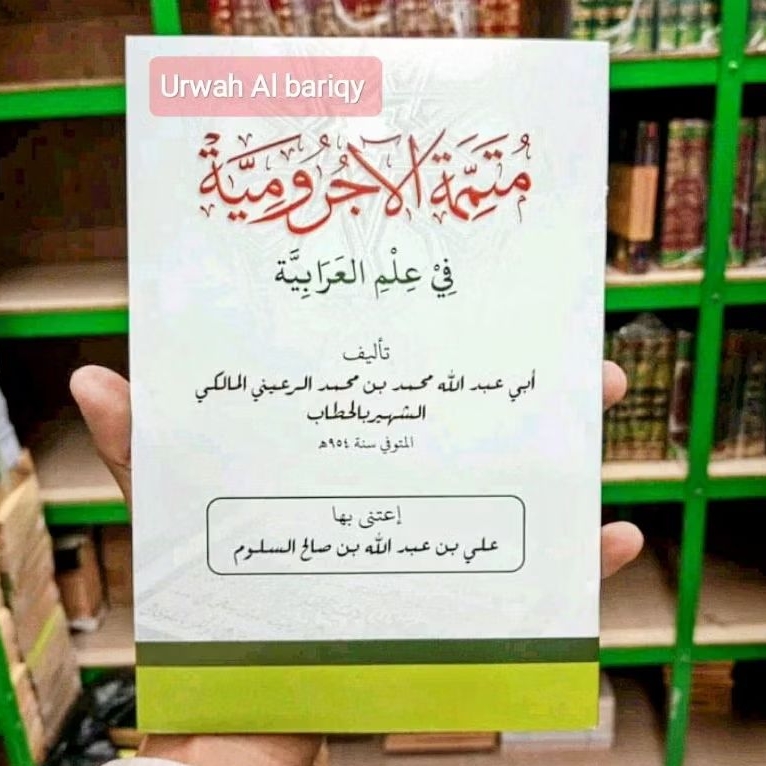 Urwah Al bariqy
مُتَمِّمَة الآجُرُومِيَّة
فِيْ عِلْمِ العَرَابِيَّة
تأليف
أبي عبد الله محمد بن محمد الرعيني المالكي
الشهير بالحطاب
المتوفي سنة ٩٥٤هـ
إعتنى بها
علي بن عبد الله بن صالح السلوم